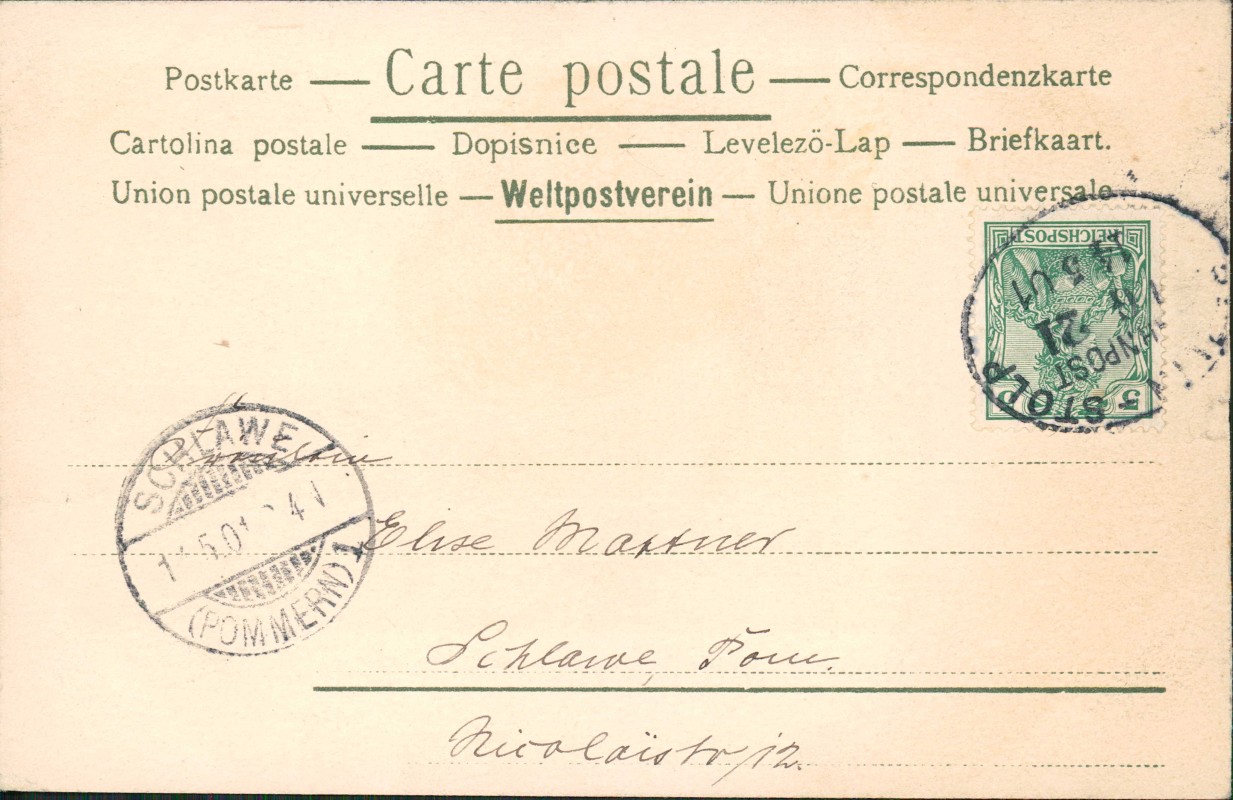 Postkarte — Carte postale — Correspondenzkarte
Cartolina postale — Dopisnice — Levelező-Lap — Briefkaart.
Union postale universelle — Weltpostverein — Unione postale universale
REICHSPOST
5
14 5 01
21
STOLP
SCHLAWE
5.01
(POMMERN) 1
Fräulein
Elise Mattner
Schlawe, Pom.
Nicolaistr 12.